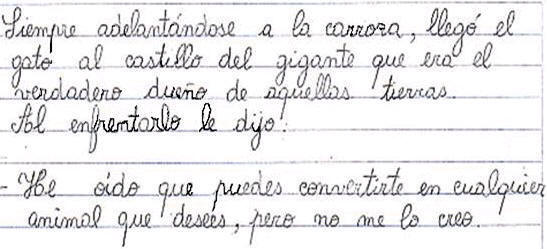 Siempre adelantándose a la carroza, llegó el
gato al castillo del gigante que era el
verdadero dueño de aquellas tierras.
Al enfrentarlo le dijo:
- He oído que puedes convertirte en cualquier
animal que desees, pero no me lo creo.